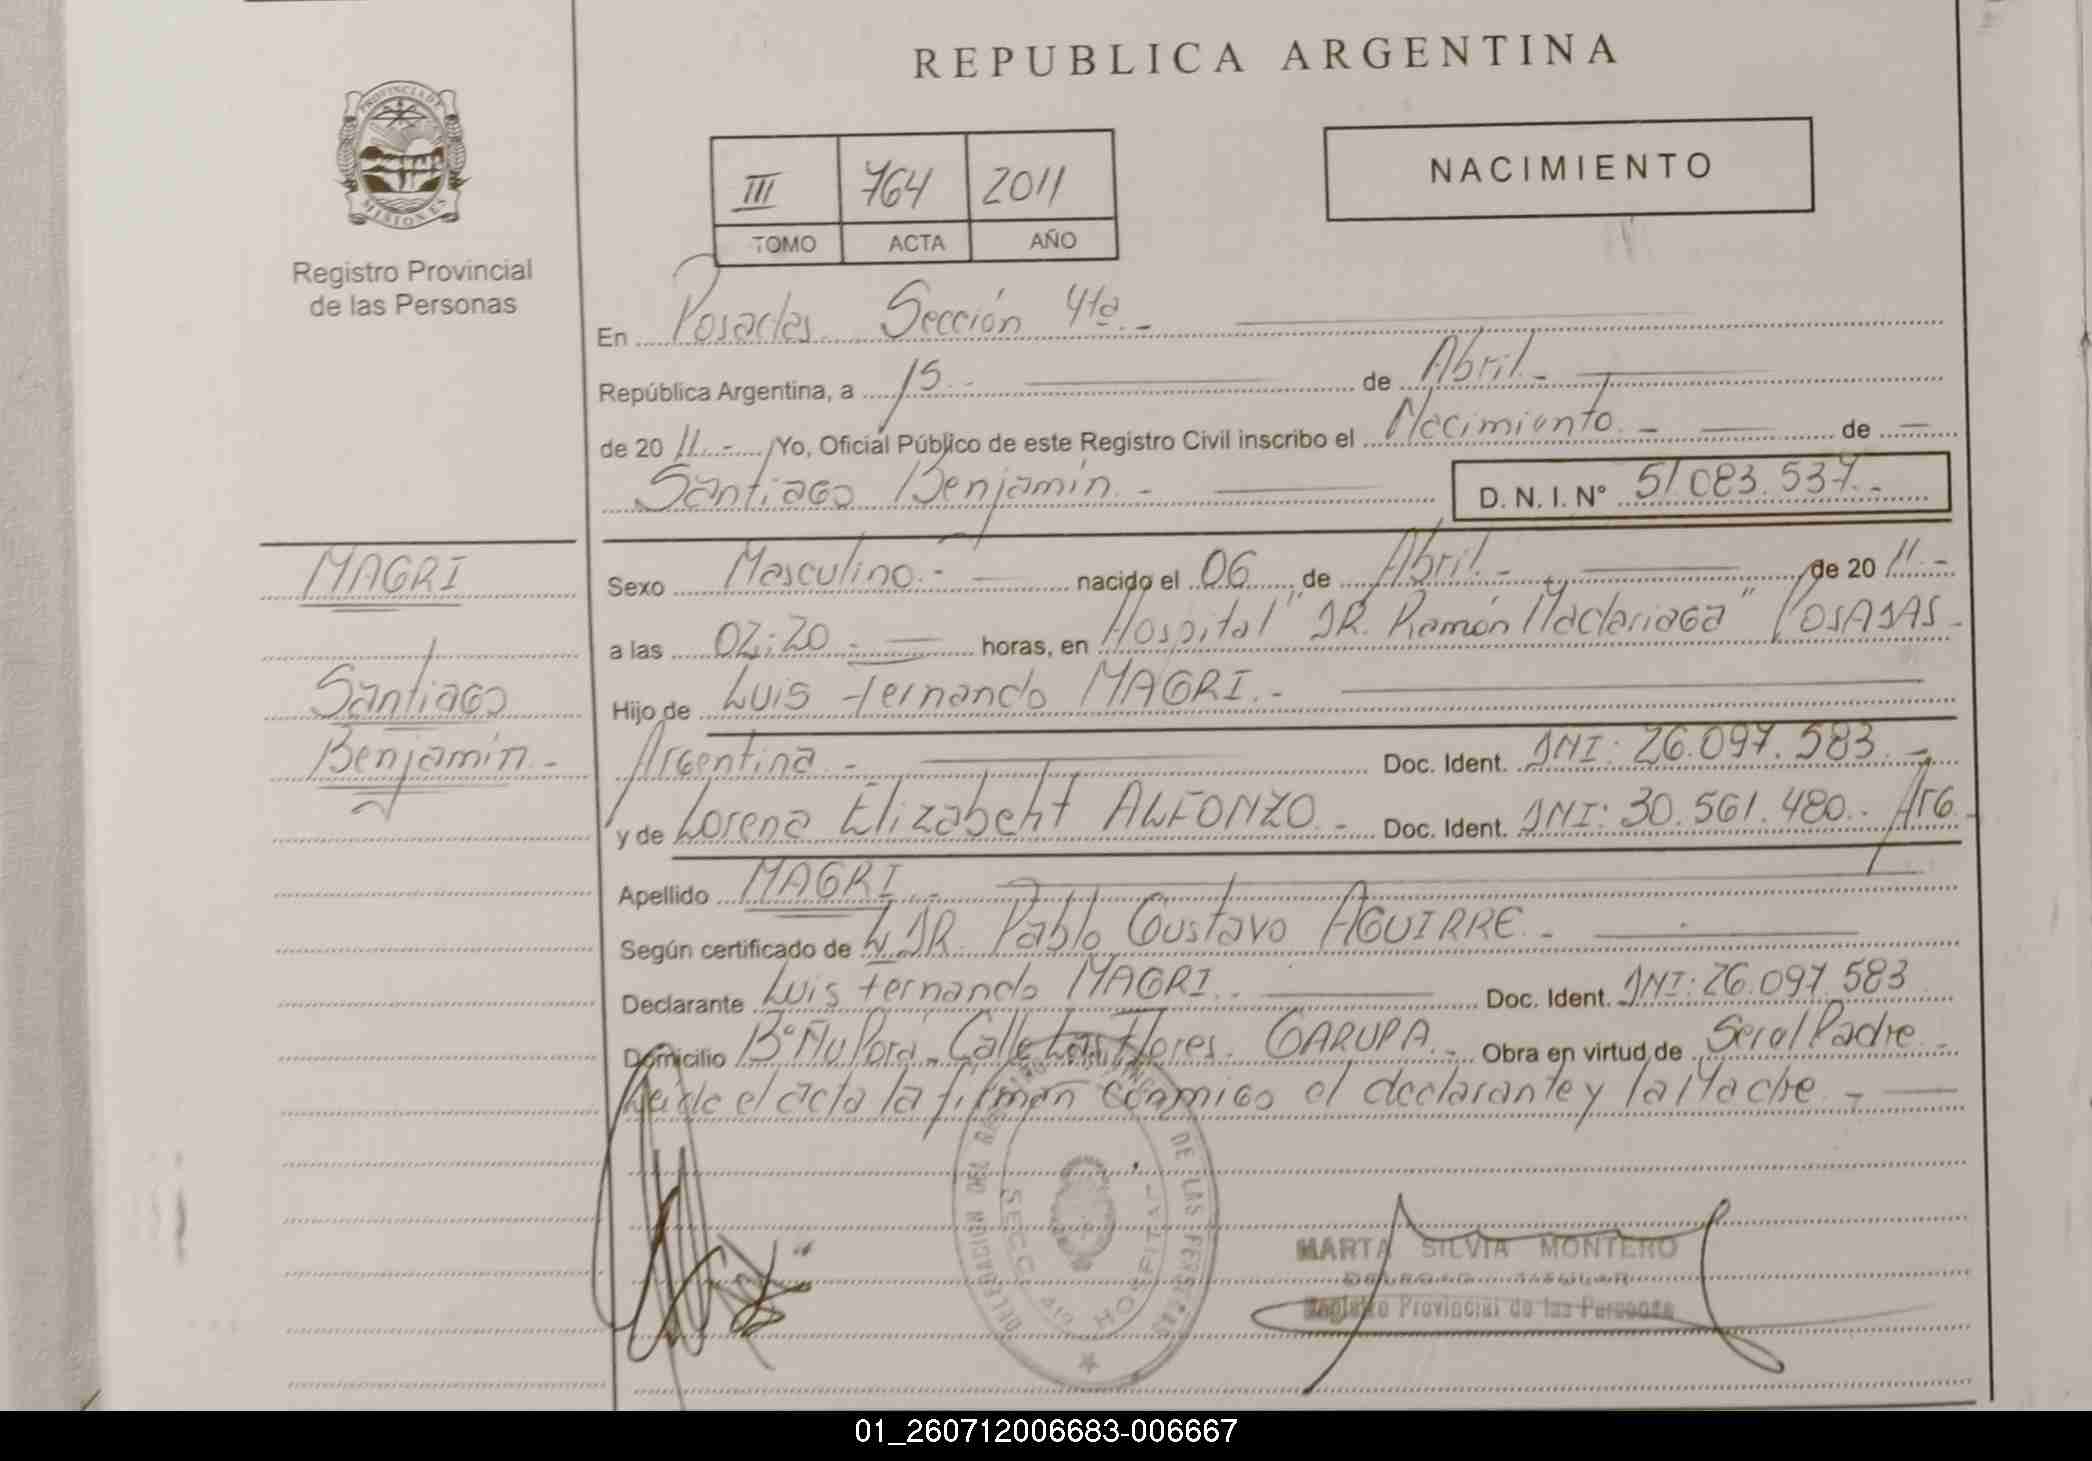 REPUBLICA ARGENTINA
PROVINCIA DE
MISIONES
Registro Provincial
de las Personas
III 764 2011
TOMO ACTA AÑO
NACIMIENTO
En Posadas Sección 4ta.-
República Argentina, a 15.- de Abril.-
de 20 11.- Yo, Oficial Público de este Registro Civil inscribo el Nacimiento.- de
Santiago Benjamín.- D. N. I. N° 51.083.537.-
MAGRI
Santiago
Benjamín.-
Sexo Masculino.- nacido el 06 de Abril.- de 20 11.-
a las 02:20.- horas, en Hospital "DR. Ramón Madariaga" POSADAS.
Hijo de Luis Fernando MAGRI.-
Argentina.- Doc. Ident. DNI: 26.097.583.-
y de Lorena Elizabeht ALFONZO.- Doc. Ident. DNI: 30.561.480.- Arg.
Apellido MAGRI.-
Según certificado de DR. Pablo Gustavo AGUIRRE.-
Declarante Luis Fernando MAGRI.- Doc. Ident. DNI: 26.097.583
Domicilio B° Ñu Porá. Calle Las Flores. GARUPA.- Obra en virtud de Ser el Padre.-
el acta la firman conmigo el declarante y la Madre.-
DE LAS PERSONAS
SECC. 4ta HOSPITAL
MARTA SILVIA MONTERO
Registro Provincial de las Personas
01_260712006683-006667